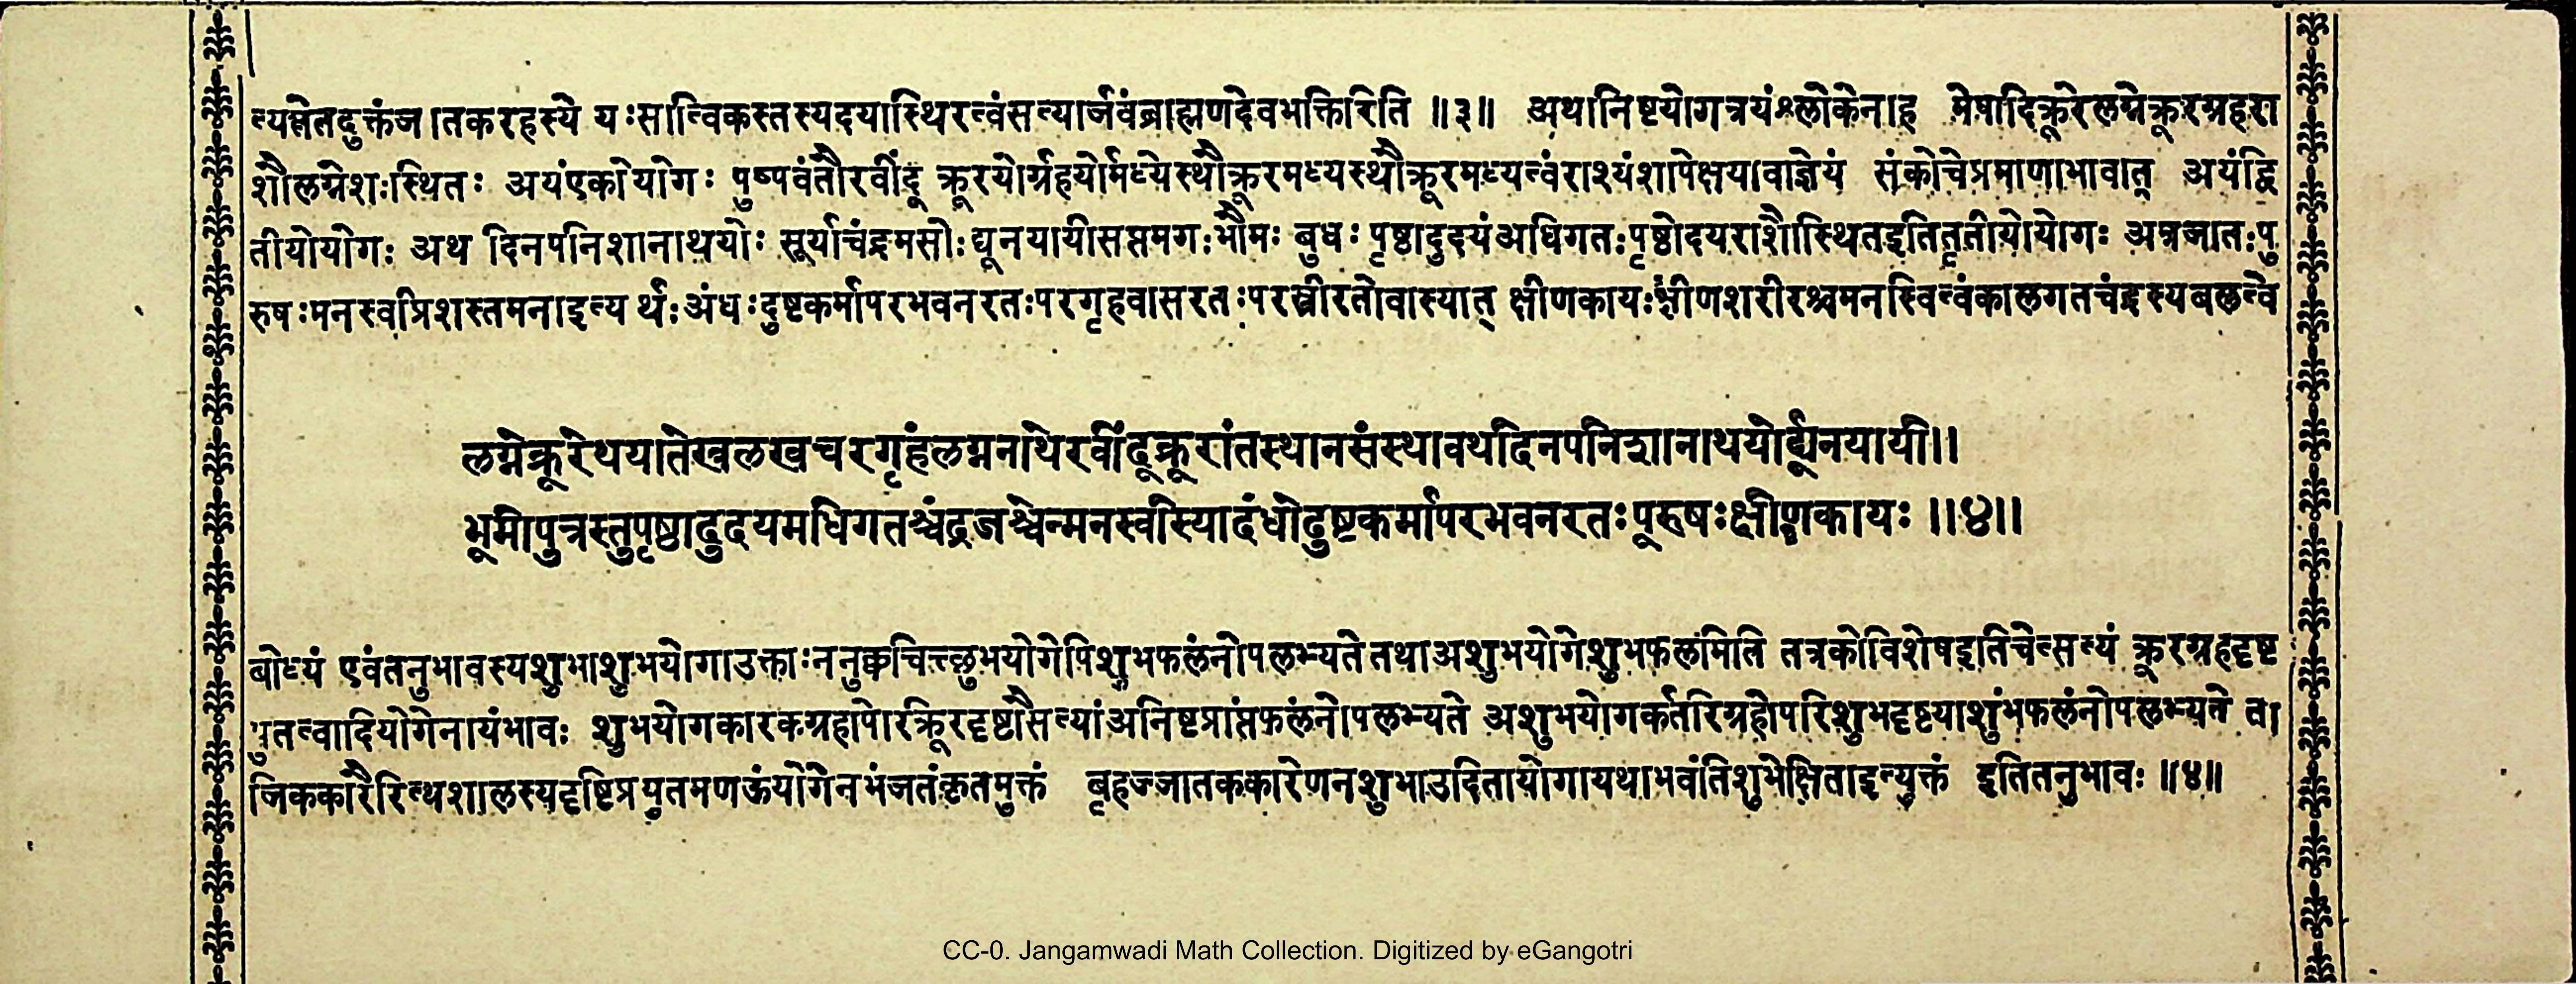 त्यमेतदुक्तंजातकरहस्ये यःसात्विकस्तस्यदयास्थिरत्वंसत्यार्जवंब्राह्मणदेवभक्तिरिति ॥३॥ अथानिष्टयोगत्रयंश्लोकेनाह मेषादिक्रूरेलग्नेक्रूरग्रहरा
शौलग्नेशःस्थितः अयंएकोयोगः पुष्पवंतौरवींदू क्रूरयोर्ग्रहयोर्मध्येस्थौक्रूरमध्यस्थौक्रूरमध्यत्वंराश्यंशापेक्षयावाज्ञेयं संकोचेप्रमाणाभावात् अयंद्वि
तीयोयोगः अथ दिनपनिशानाथयोः सूर्याचंद्रमसोः द्यूनयायीसप्तमगःभौमः बुधः पृष्ठादुदयंअधिगतःपृष्ठोदयराशौस्थितइतितृतीयोयोगः अत्रजातःपु
रुषःमनस्वप्रिशस्तमनाइत्यर्थःअंधःदुष्टकर्मापरभवनरतःपरगृहवासरतःपरस्त्रीरतोवास्यात् क्षीणकायःक्षीणशरीरश्चमनस्वित्वंकालगतचंद्रस्यबलत्वे
लग्नेक्रूरेथयातेखलखचरगृहंलग्ननाथेरवींदूक्रूरांतस्थानसंस्थावथदिनपनिशानाथयोर्द्यूनयायी।।
भूमीपुत्रस्तुपृष्ठादुदयमधिगतश्चंद्रजश्चेन्मनस्वीस्यादंधोदुष्टकर्मापरभवनरतःपूरुषःक्षीणकायः ।।४।।
बोध्यं एवंतनुभावस्यशुभाशुभयोगाउक्ताःननुक्वचित्छुभयोगेपिशुभफलंनोपलभ्यतेतथाअशुभयोगेशुभफलमिति तत्रकोविशेषइतिचेत्सत्यं क्रूरग्रहदृष्ट
युतत्वादियोगेनायंभावः शुभयोगकारकग्रहोपरिक्रूरदृष्टौसत्यांअनिष्टप्राप्तंफलंनोपलभ्यते अशुभयोगकर्तरिग्रहोपरिशुभदृष्ट्याशुभफलंनोपलभ्यते ता
जिककारैरित्थशालस्यदृष्टिप्रयुतमणऊंयोगेनभंजतंकृतमुक्तं बृहज्जातककारेणनशुभाउदितायोगायथाभवंतिशुभेक्षिताइत्युक्तं इतितनुभावः ॥४॥
CC-0. Jangamwadi Math Collection. Digitized by eGangotri